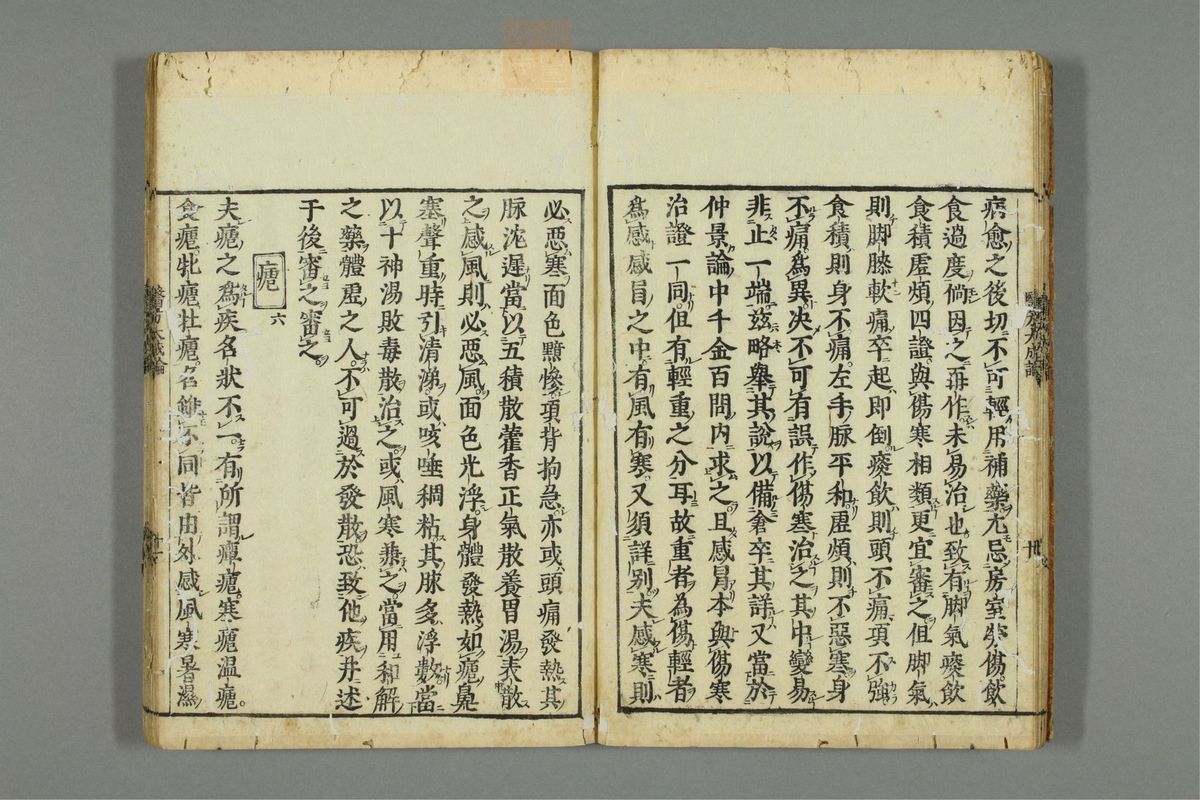 病愈之後切不可輕用補藥尤忌房室勞傷飲
食過度倘因之再作未易治也致有脚氣痰飲
食積虛煩四證與傷寒相類更宜審之但脚氣
則脚膝軟痛卒起即倒痰飲則頭不痛項不強
食積則身不痛左手脉平和虛煩則不惡寒身
不痛爲異决不可有誤作傷寒治之其中變易
非止一端玆略舉其說以備倉卒其詳又當於
仲景論中千金百問内求之且感冒本與傷寒
治證一同但有輕重之分耳故重者為傷輕者
為感感冒之中有風有寒又須詳别夫感寒則
必惡寒面色黲慘項背拘急亦或頭痛發熱其
脉沈遲當以五積散藿香正氣散養胃湯表散
之感風則必惡風面色光浮身體發熱如瘧鼻
塞聲重時引清涕或咳唾稠粘其脉多浮數當
以十神湯敗毒散治之或風寒兼之當用和解
之藥體虛之人不可過於發散恐致他疾并述
于後審之審之
瘧 六
夫瘧之為疾名狀不一有所謂癉瘧寒瘧温瘧
食瘧牝瘧牡瘧名雖不同皆由外感風寒暑濕